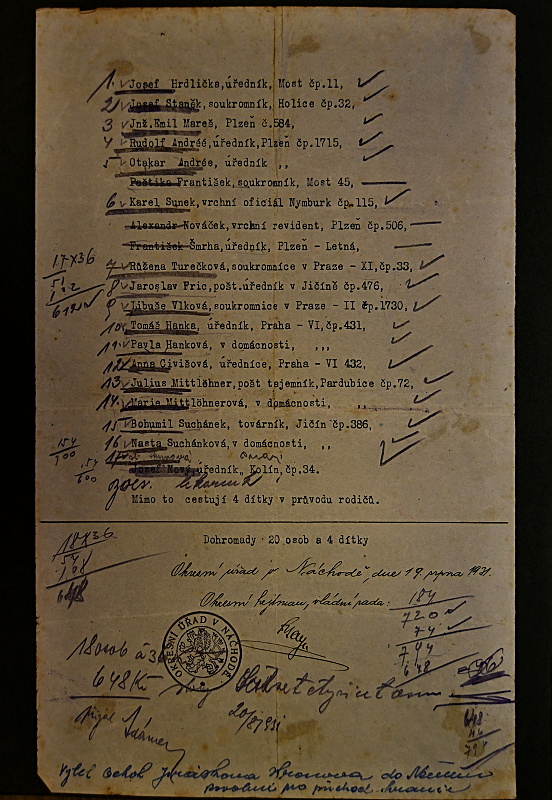 1. Josef Hrdlička, úředník, Most čp.11,
2 Josef Staněk, soukromník, Holice čp.32,
3 Jnž.Emil Mareš, Plzeň č.584,
4 Rudolf Andréé, úředník, Plzeň čp.1715,
5 Otakar Andrée, úředník ,,
Paštika František, soukromník, Most 45,
6 Karel Sunek, vrchní oficiál Nymburk čp.115,
Alexandr Nováček, vrchní revident, Plzeň čp.506,
František Šmrha, úředník, Plzeň - Letná,
7 Růžena Turečková, soukromnice v Praze - XI, čp.33,
8 Jaroslav Fric, pošt.úředník v Jičíně čp.476,
9 Libuše Vlková, soukromnice v Praze - II čp.1730,
10 Tomáš Hanka, úředník, Praha - VI, čp.431,
11 Pavla Hanková, v domácnosti, ,,,
12 Anna Civišová, úřednice, Praha - VI 432,
13 Julius Mittlöhner, pošt tajemník, Pardubice čp.72,
14. Marie Mittlöhnerová, v domácnosti, ,,
15 Bohumil Suchánek, továrník, Jičín čp.386,
16 Nasta Suchánková, v domácnosti, ,,
Josef Nový, úředník, Kolín, čp.34.
Mimo to cestují 4 dítky v průvodu rodičů.
17x36
51
612
154
100
154
600
Dohromady 20 osob a 4 dítky
18x36
54
108
648
Okresní úřad v Náchodě, dne 19. srpna 1931.
Okresní hejtman, vládní rada:
184
720
74
794
648
OKRESNÍ ÚŘAD V NÁCHODĚ
18 osob á 36
648 Kč
20/8 1931
648
Výlet
do
pro příchod hranic